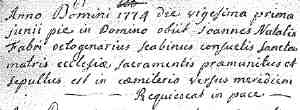 Anno Domini 1774 die vigesima prima
junii pie in Domino obiit Joannes Natalis
Fabri octogenarius scabinus consuetis sanctæ
matris ecclesiæ sacramentis præmunitus et
sepultus est in cæmiterio versus meridiem
Requiescat in pace